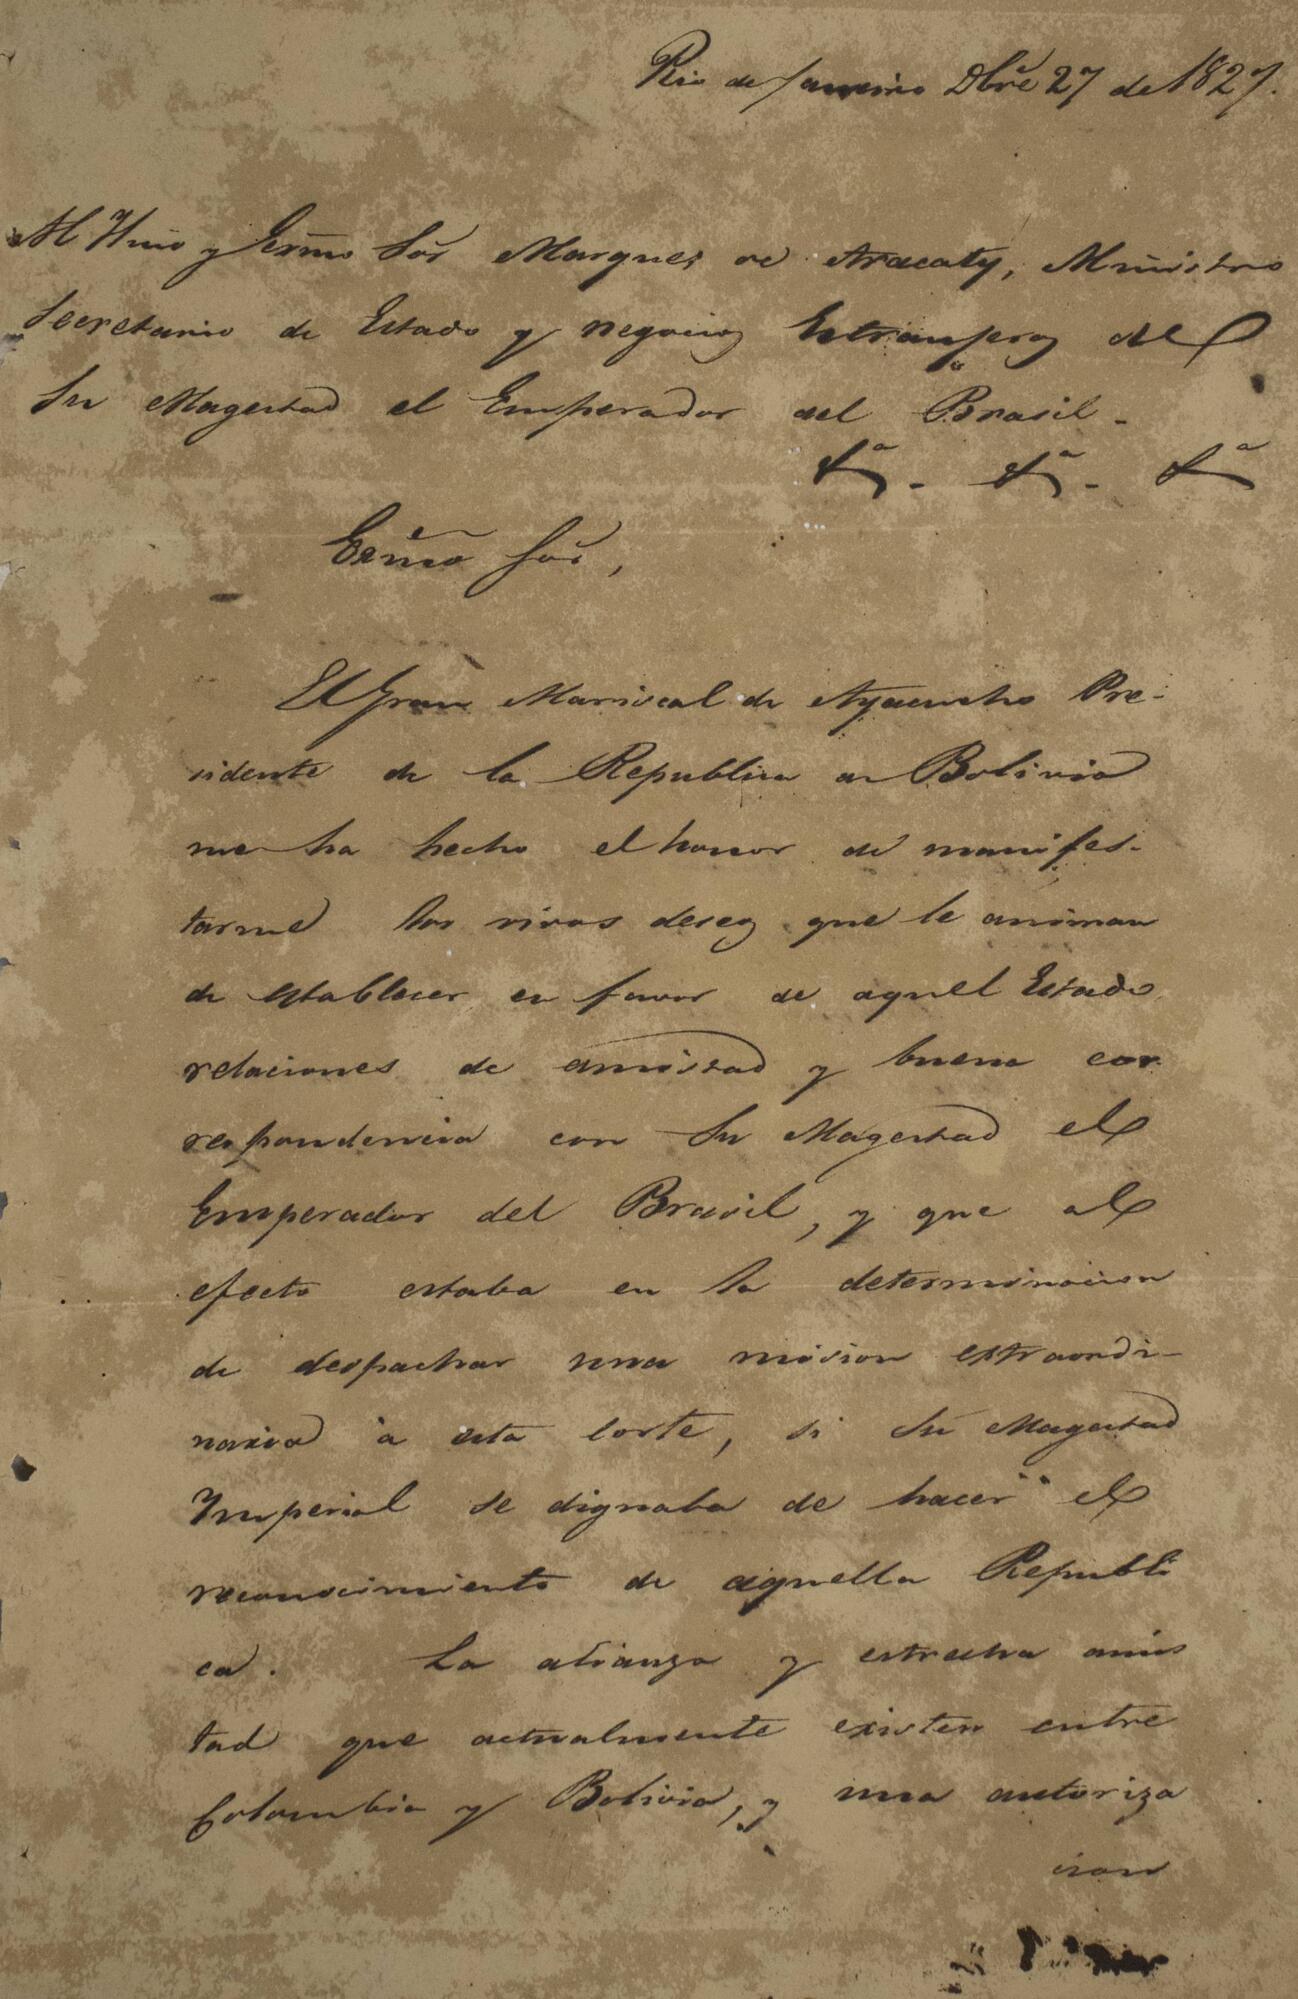 Rio de Janeiro Dbre 27 de 1827.
Al Illmo y Exmo Sor Marques de Aracaty, Ministro
Secretario de Estado y negocios Estranjeros del
Su Magestad el Emperador del Brasil -
&a - &a - &a
Exmo Sor,
El Gran Mariscal de Ayacucho Pre-
sidente de la Republica de Bolivia
me ha hecho el honor de manifes-
tarme los vivos deseos que le animan
de establecer en favor de aquel Estado
relaciones de amistad y buena cor
respondencia con Su Magestad el
Emperador del Brasil, y que al
efecto estaba en la determinacion
de despachar una mision extraordi-
naria à esta Corte, si Su Magestad
Imperial se dignaba de hacer el
reconocimiento de aquella Republi
ca. La alianza y estrecha amis
tad que actualmente existen entre
Colombia y Bolivia, y una autoriza
cion